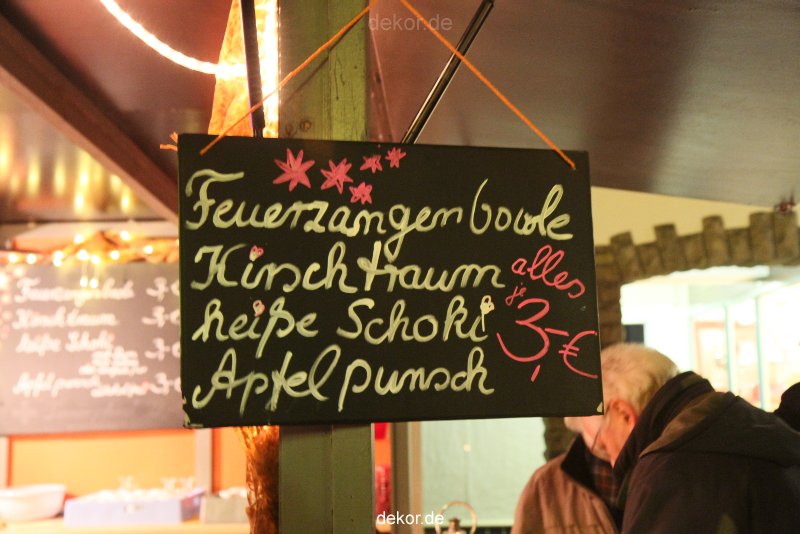 dekor.de
Feuerzangenbowle
Kirschtraum
heiße Schoki
Apfelpunsch
alles
je
3,- €
Feuerzangenbowle 3,-€
Kirschtraum 3,-€
heiße Schoki 3,-€
Apfelpunsch 3,-€
dekor.de